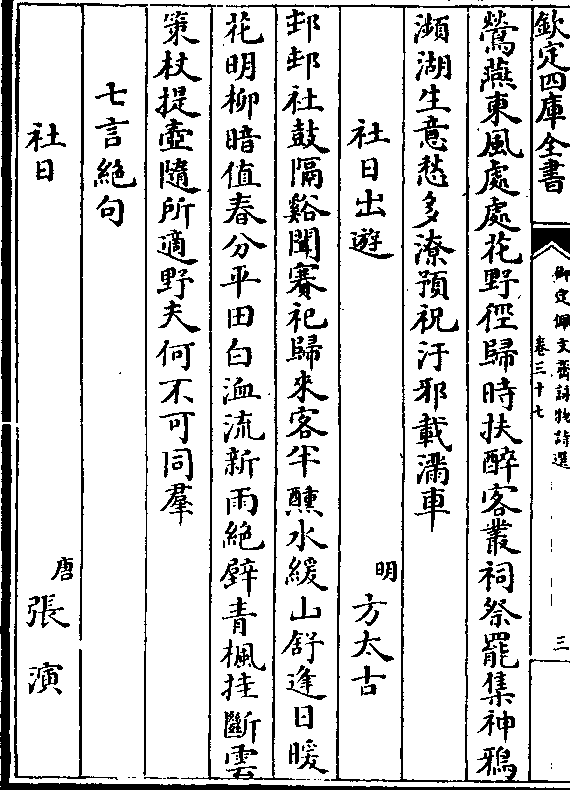 欽定四庫全書
御定佩文齋詠物詩選
卷三十七
三
鶯燕東風處處花野徑歸時扶醉客叢祠祭罷集神鴉
瀕湖生意愁多潦預祝汙邪載滿車
社日出遊
明
方太古
邨邨社鼓隔谿聞賽祀歸來客半醺水緩山舒逢日暖
花明柳暗值春分平田白洫流新雨絶壁青楓挂斷雲
策杖提壺隨所適野夫何不可同羣
七言絶句
社日
唐
張演